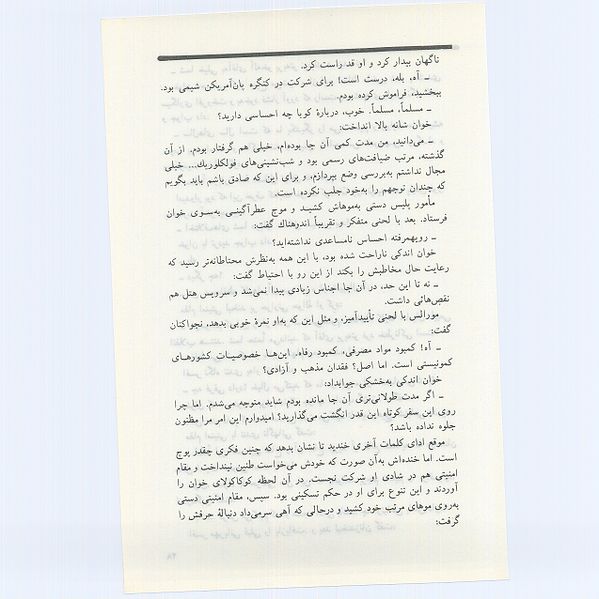 ناگهان بیدار کرد و او قد راست کرد.
ـ آه، بله، درست است! برای شرکت در کنگره پان‌آمریکن شیمی بود.
ببخشید، فراموش کرده بودم.
ـ مسلماً، مسلماً. خوب، دربارهٔ کوبا چه احساسی دارید؟
خوان شانه بالا انداخت:
ـ می‌دانید، من مدت کمی آن جا بوده‌ام، خیلی هم گرفتار بودم. از آن
گذشته، مرتب ضیافت‌های رسمی بود و شب‌نشینی‌های فولکلوریك... خیلی
مجال نداشتم به‌بررسی وضع بپردازم، و برای این که صادق باشم باید بگویم
که چندان توجهم را به‌خود جلب نکرده است.
مأمور پلیس دستی به‌موهاش کشید و موج عطرآگینی به‌سوی خوان
فرستاد. بعد با لحنی متفکر و تقریباً اندوهناك گفت:
ـ رویهمرفته احساس نامساعدی نداشته‌اید؟
خوان اندکی ناراحت شده بود، با این همه به‌نظرش محتاطانه‌تر رسید که
رعایت حال مخاطبش را بکند از این رو با احتیاط گفت:
ـ نه تا این حد، در آن جا اجناس زیادی پیدا نمی‌شد و سرویس هتل هم
نقص‌هائی داشت.
مورالس با لحنی تأییدآمیز، و مثل این که به‌او نمرهٔ خوبی بدهد، نجواکنان
گفت:
ـ آه! کمبود مواد مصرفی، کمبود رفاه. این‌ها خصوصیات کشورهای
کمونیستی است. اما اصل؟ فقدان مذهب و آزادی؟
خوان اندکی به‌خشکی جوابداد:
ـ اگر مدت طولانی‌تری آن جا مانده بودم شاید متوجه می‌شدم. اما چرا
روی این سفر کوتاه این قدر انگشت می‌گذارید؟ امیدوارم این امر مرا مظنون
جلوه نداده باشد؟
موقع ادای کلمات آخری خندید تا نشان بدهد که چنین فکری چقدر پوچ
است. اما خنده‌اش به‌آن صورت که خودش می‌خواست طنین نینداخت و مقام
امنیتی هم در شادی او شرکت نجست. در آن لحظه کوکاکولای خوان را
آوردند و این تنوع برای او در حکم تسکینی بود. سپس، مقام امنیتی دستی
به‌روی موهای مرتب خود کشید و درحالی که آهی سرمی‌داد دنبالهٔ حرفش را
گرفت: